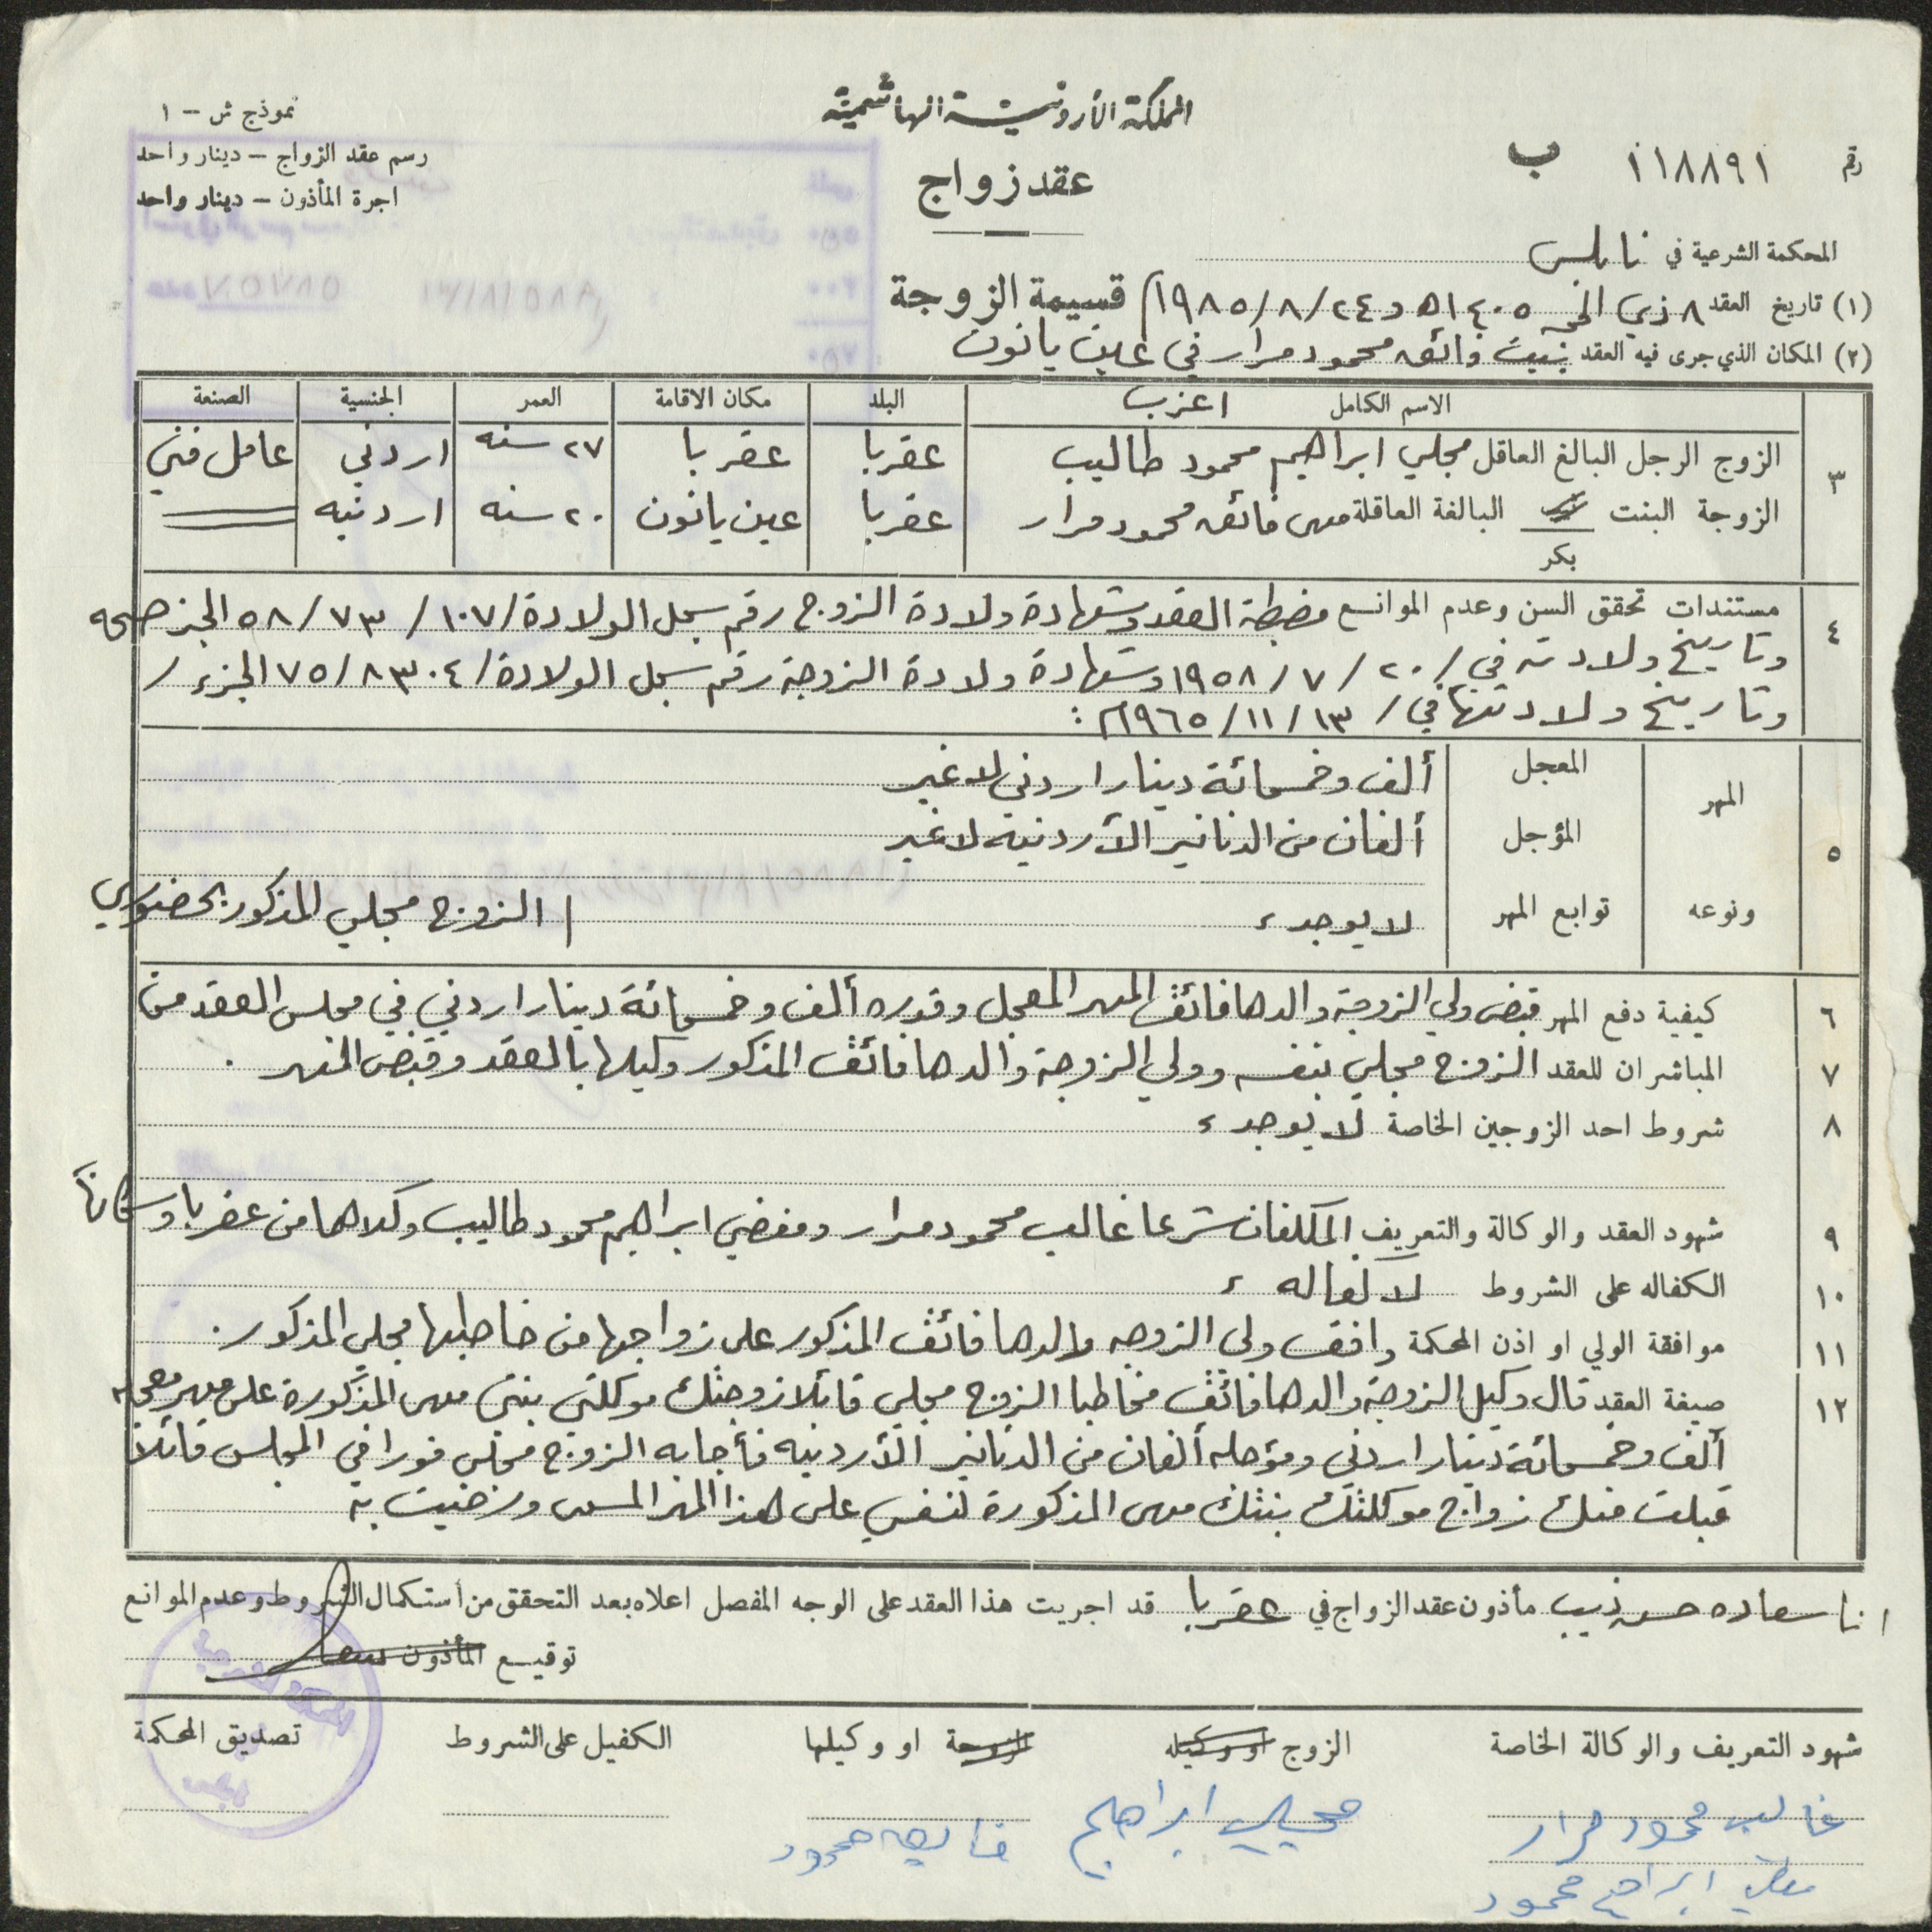 المملكة الأردنية الهاشمية
نموذج ش - ١
رسم عقد الزواج - دينار واحد
اجرة المأذون - دينار واحد
رقم ١١٨٨٩١ ب
عقد زواج
المحكمة الشرعية في نابلس
(١) تاريخ العقد ٨ ذي الحجه ١٤٠٥ه و ٢٤/٨/١٩٨٥م قسيمة الزوجة
(٢) المكان الذي جرى فيه العقد بيت فائق محمود مرار في عين يانون
الاسم الكامل اعزب البلد مكان الاقامة العمر الجنسية الصنعة
٣
الزوج الرجل البالغ العاقل مجلي ابراهيم محمود طاليب عقربا عقربا ٢٧ سنه اردني عامل فني
الزوجة البنت البالغة العاقلة مهى فائق محمود مرار عقربا عين يانون ٢٠ سنه اردنيه
بكر
٤ مستندات تحقق السن وعدم الموانع مضبطة العقد وشهادة ولادة الزوج رقم سجل الولادة/١٠٧ /٧٣ /٥٨ الجزء صحه
وتاريخ ولادته في /٢٠ /٧ /١٩٥٨ وشهادة ولادة الزوجة رقم سجل الولادة/٨٣٠٤ /٧٥ الجزء /
وتاريخ ولادتها في / ١٣ /١١ /١٩٦٥م :
٥ المهر ونوعه
المعجل ألف وخمسمائة دينار اردني لا غير
المؤجل ألفان من الدنانير الأردنية لا غير
توابع المهر لا يوجد ء | الزوج مجلي المذكور بحضوري
٦ كيفية دفع المهر قبض ولي الزوجة والدها فائق المهر المعجل وقدره ألف وخمسمائة دينار اردني في مجلس العقد من
٧ المباشران للعقد الزوج مجلي بنفسه وولي الزوجة والدها فائق المذكور وكيلها بالعقد وقبض المهر .
٨ شروط احد الزوجين الخاصة لا يوجد ء
٩ شهود العقد والوكالة والتعريف المكلفان شرعا غالب محمود مرار ومفضي ابراهيم محمود طاليب وكلاهما من عقربا وسكانها
١٠ الكفاله على الشروط لا كفاله ء
١١ موافقة الولي او اذن المحكمة وافق ولي الزوجه والدها فائق المذكور على زواجها من خاطبها مجلي المذكور.
١٢ صيغة العقد قال وكيل الزوجة والدها فائق مخاطبا الزوج مجلي قائلا زوجتك موكلتي بنتي مهى المذكورة على مهر معجله
ألف وخمسمائة دينار اردني ومؤجله ألفان من الدنانير الأردنيه فأجابه الزوج مجلي فورا في المجلس قائلا
قبلت منك زواج موكلتك بنتك مهى المذكورة لنفسي على هذا المهر المسمى ورضيت به
انا سعاده حسن ذيب مأذون عقد الزواج في عقربا قد اجريت هذا العقد على الوجه المفصل اعلاه بعد التحقق من أستكمال الشروط وعدم الموانع
توقيع المأذون
شهود التعريف والوكالة الخاصة الزوج او وكيله الزوجة او وكيلها الكفيل على الشروط تصديق المحكمة
غالب محمود مرار مجلي ابراهيم فائق محمود
مفضي ابراهيم محمود